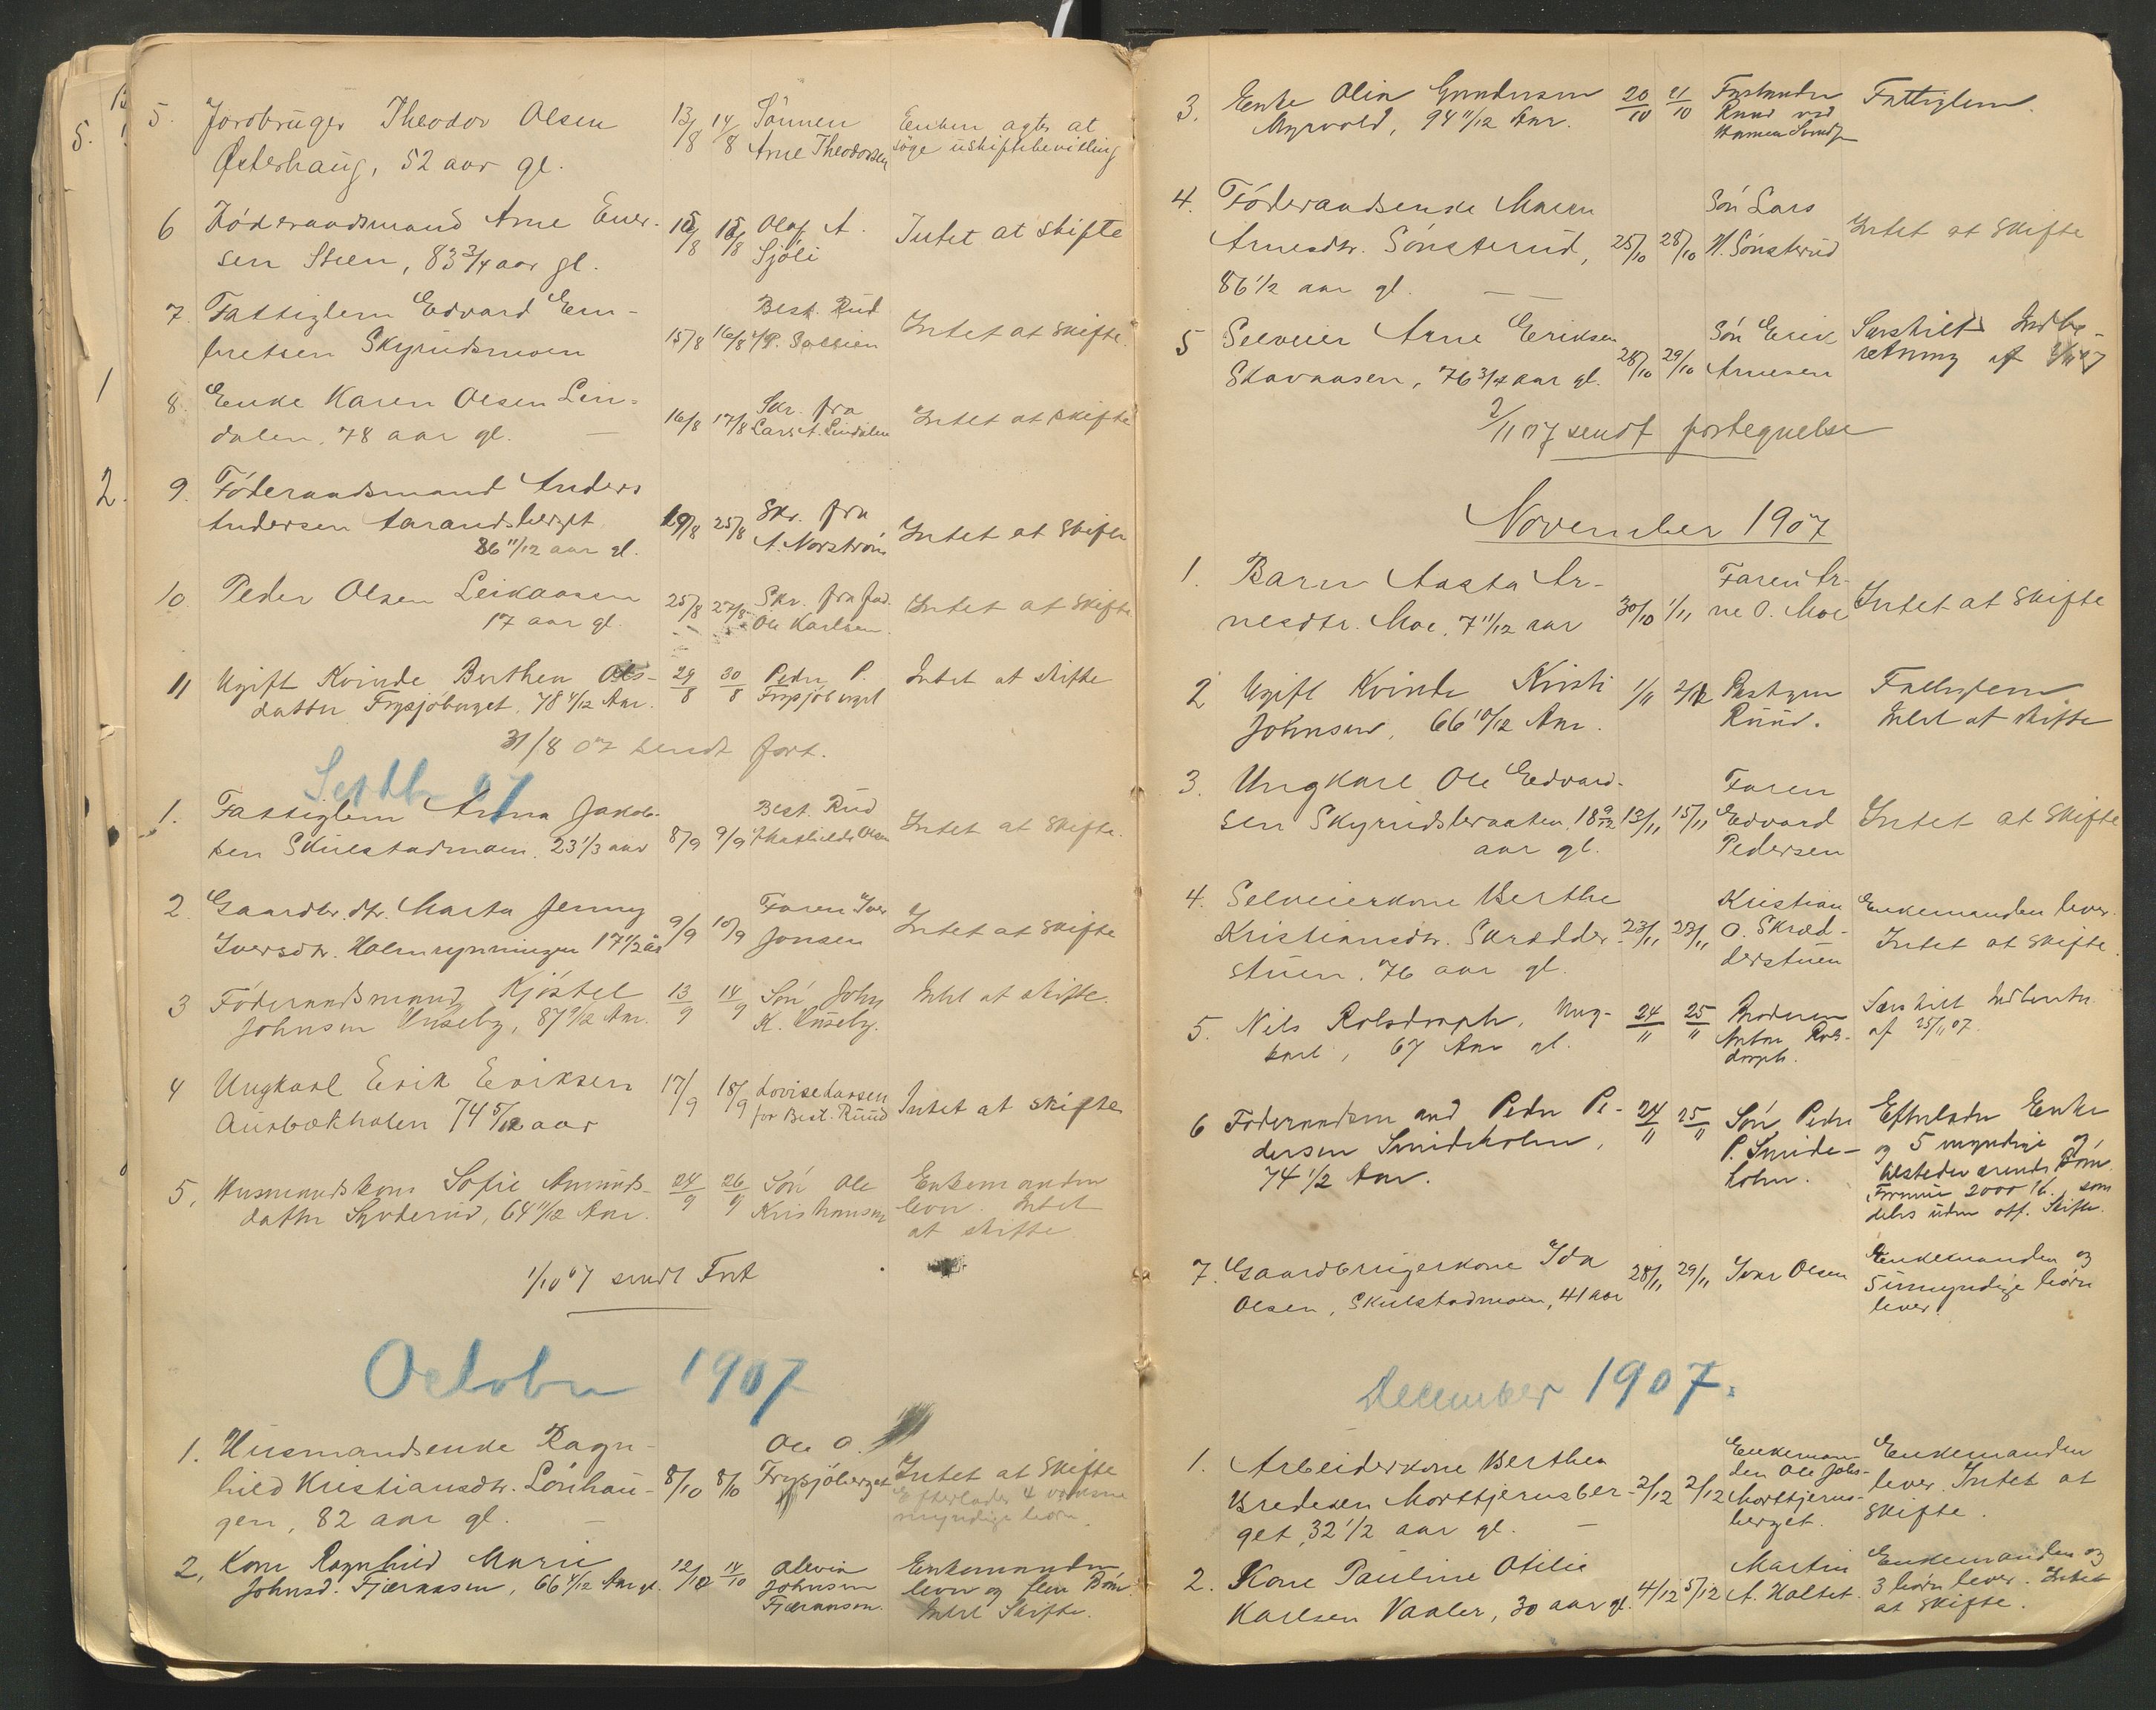 5. Jordbruger Theodor Olsen 13/8 14/8 Sönnen Enken agter at
Østerhaug, 52 aar gl. Arne Theodorsen söge uskiftebevilling
6 Föderaadsmand Arne Ener- 15/8 15/8 Olaf A. Intet at skifte
sen Steen, 83 3/4 aar gl. Sjöli
7. Fattiglem Edvard Em- Best. Rud
bretsen Skyrudsmoen 15/8 16/8 Intet at skifte.
8. Enke Karen Olsen Lin- 16/8 17/8 Skr. fra Intet at skifte
dalen, 78 aar gl. — Lars A. Lindalen
9. Föderaadsmand Anders
Andersen Aarandsberget 19/8 25/8 Skr. fra Intet at skifte
86 11/12 aar gl. A. Norström
10 Peder Olsen Leikaasen 25/8 27/8 Skr. fra fad. Intet at skifte
17 aar gl. Ole Karlsen
11 Ugift Kvinde Berthea Ols- 29/8 30/8 Peder P. Intet at skifte
datter Frysjöberget, 78 4/12 Aar. Frysjöberget
31/8 07 sendt fort.
Septbr 07
1. Fattiglem Anna Jakob- Best. Rud
sen Skulstadmoen. 23 1/3 aar 8/9 9/9 Mathilde Olsen Intet at skifte.
2. Gaardbr. dtr. Marta Jenny 9/9 10/9 Faren Iver Intet at skifte
Iversdtr. Holmrynningen 17 1/2 aar Jonsen
3 Föderaadsmand Kjöstel 13/9 14/9 Sön John Intet at skifte.
Johnsen Huseby, 87 1/2 Aar. K. Huseby.
4 Ungkarl Erik Eriksen 17/9 18/9 Lovise Larsen Intet at skifte
Ausbækholen 74 5/12 aar for Best. Ruud
5. Husmandskone Sofie Amunds- 24/9 26/9 Sön Ole Enkemanden
datter, 64 11/12 Aar. Kristiansen lever. Intet
at skifte
1/10 07 sendt Fort
October 1907
1. Husmandsenke Ragn- Ole O.
hild Kristiansdtr. Lönhau- 8/10 8/10 Frysjöberget Intet at skifte
gen, 82 aar gl. — Efterlader 4 voksne
myndige börn.
2, Kone Ragnhild Marie 12/10 14/10 Olevia Enkemanden
Johnsd. Fjæraasen, 66 4/12 Aar gl. Johnsen lever og flere Börn
Fjæraasen. Intet Skifte.
3. Enke Olia Gundersen 20/10 21/10 Forstander Fattiglem.
Myrvold, 94 11/12 Aar. Ruud ved
4. Föderaadsenke Maren Sön Lars
Arnesdtr. Sönsterud, 25/10 28/10 H. Sönsterud Intet at skifte
86 1/2 aar gl. — —
5 Selveier Arne Eriksen 28/10 29/10 Sön Erik Særskilt Indbe-
Skavaasen, 76 3/4 aar gl. Arnesen retning af
2/11 07 sendt fortegnelse
November 1907
1. Barn Aasta Ar- Faren Ar-
nesdtr. Moe, 7 11/12 aar 30/10 1/11 ne O. Moe Intet at skifte
2 Ugift Kvinde Kristi 1/11 Bestyrer Fattiglem
Johnsen, 66 10/12 Aar. Ruud. Intet at skifte
3. Ungkarl Ole Edvard- Faren
sen Skyrudsbraaten, 18 9/12 13/11 15/11 Edvard Intet at skifte
aar gl. Pedersen
4. Selveierkone Berthe Kristian Enkemanden lever.
Kristiansdtr. Skrædder- 23/11 23/11 O. Skræd- Intet at skifte.
stuen. 76 aar gl. derstuen
5. Nils Rolsdorph, Ung- 24/11 25/11 Broderen Særskilt Indberetn
karl, 67 Aar gl. Anton Rols- af 25/11 07.
dorph.
6 Föderaadsmand Peder Pe- 24/11 25/11 Sön Peder Efterlader Enke
dersen Smideholm, P. Smide- og 5 myndige og
74 1/2 Aar. holm. tilstedeværende Börn.
Formue 2000 K., som
deles uden off. Skifte.
7. Gaardbrugerkone Ida 28/11 29/11 Ivar Olsen Enkemanden og
Olsen, Skulstadmoen, 41 aar 5 umyndige börn
lever.
December 1907.
1. Arbeiderkone Berthea Enkeman- Enkemanden
Bredesen Morttjernsber- 2/12 2/12 den Ole Johs- lever. Intet at
get, 32 1/2 aar gl. — Morttjerns- skifte.
berget.
2. Kone Pauline Otilie Martin Enkemanden og
Karlsen Vaaler, 30 aar gl. 4/12 5/12 A. Haltet. 3 börn lever. Intet
at skifte.